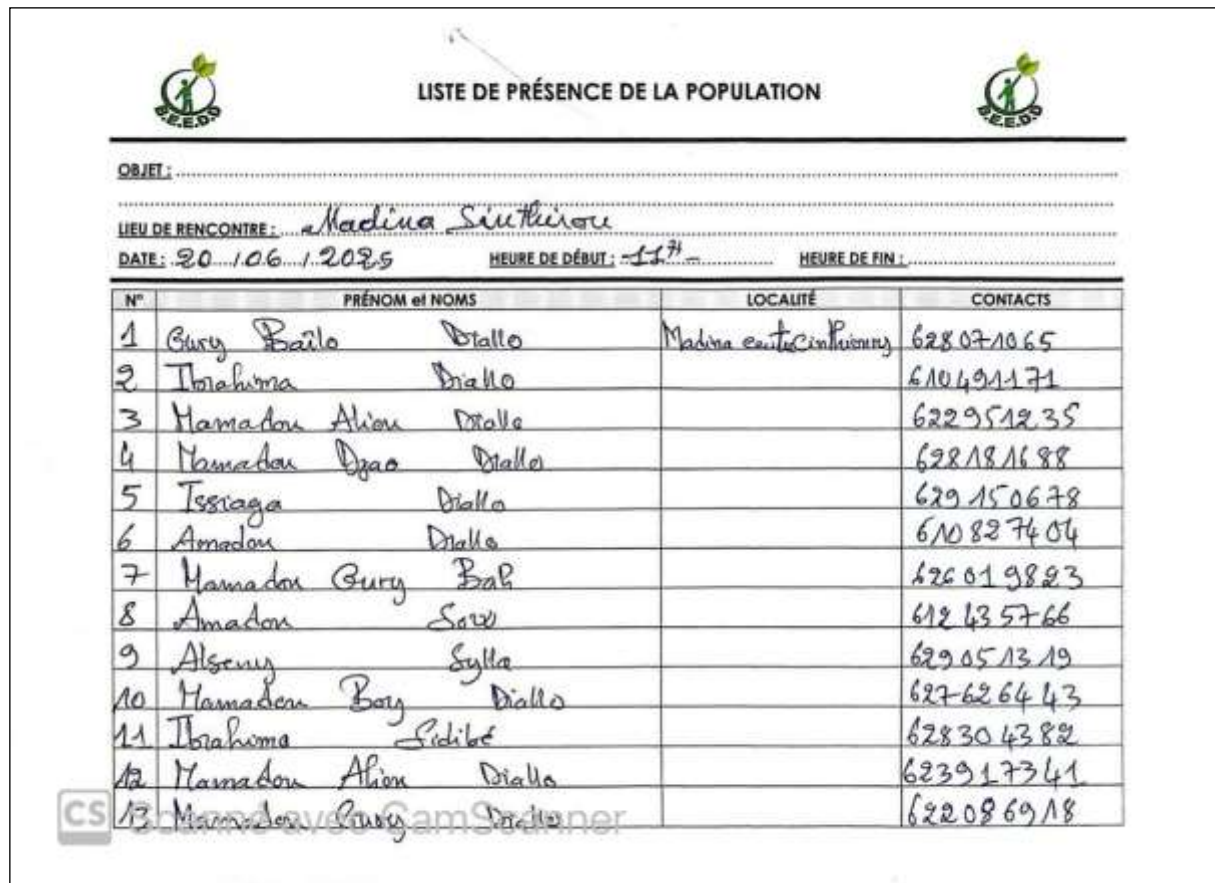 LISTE DE PRÉSENCE DE LA POPULATION
B.E.E.D.D
B.E.E.D.D
OBJET :
LIEU DE RENCONTRE : Madina Sinthirou
DATE : 20 / 06 / 2025 HEURE DE DÉBUT : 11H HEURE DE FIN :
N° PRÉNOM et NOMS LOCALITÉ CONTACTS
1 Oury Baïlo Diallo Madina 628071065
2 Ibrahima Diallo 610491171
3 Mamadou Aliou Diallo 622951235
4 Mamadou Diallo 628181688
5 Issiaga Diallo 629150678
6 Amadou Diallo 610827404
7 Mamadou Oury Bah 626019823
8 Amadou Sow 612435766
9 Alseny Sylla 629051319
10 Mamadou Boy Diallo 627626443
11 Ibrahima Sidibé 628304382
12 Mamadou Aliou Diallo 623917341
13 Mamadou Oury Diallo 622086918
CS Scanné avec CamScanner